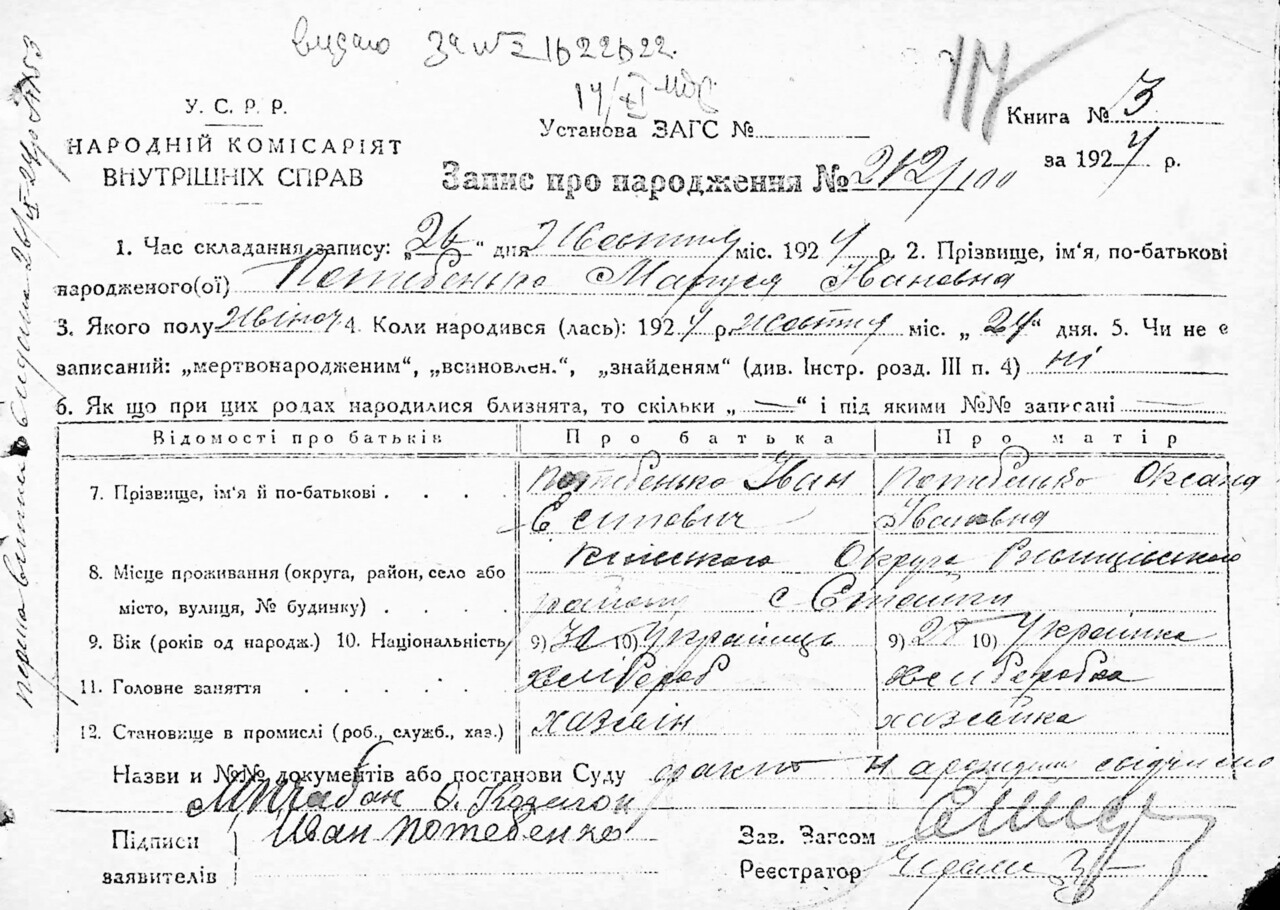 видано
У. С. Р. Р.
НАРОДНІЙ КОМІСАРІЯТ
ВНУТРІШНІХ СПРАВ
Установа ЗАГС №
Книга № 3
за 1924 р.
Запис про народження № 212/100
1. Час складання запису: „26“ дня Жовтня міс. 1924 р. 2. Прізвище, ім'я, по-батькові
народженого(ої) Потебенько Маруся Івановна
3. Якого полу жіноч 4. Коли народився (лась): 1924 р. жовтня міс. „24“ дня. 5. Чи не є
записаний: „мертвонародженим“, „всиновлен.“, „знайденям“ (див. Інстр. розд. III п. 4) ні
6. Як що при цих родах народилися близнята, то скільки „—“ і під якими №№ записані —
Відомості про батьків Про батька Про матір
7. Прізвище, ім'я й по-батькові . . . . Потебенько Іван Потебенько Оксана
Єсипович Івановна
8. Місце проживання (округа, район, село або Київського Округа Ржищівського
місто, вулиця, № будинку) . . . . району с
9. Вік (років од народж.) 10. Національність 9) 30 10) Українець 9) 28 10) Українка
11. Головне заняття . . . . . хлібороб хлiборобка
12. Становище в промислі (роб., служб., хаз.) хазяін хазяйка
Назви и №№ документів або постанови Суду факт народження свідчимо
О.
Підписи Іван Потебенко
заявителів
Зав. Загсом
Реєстратор